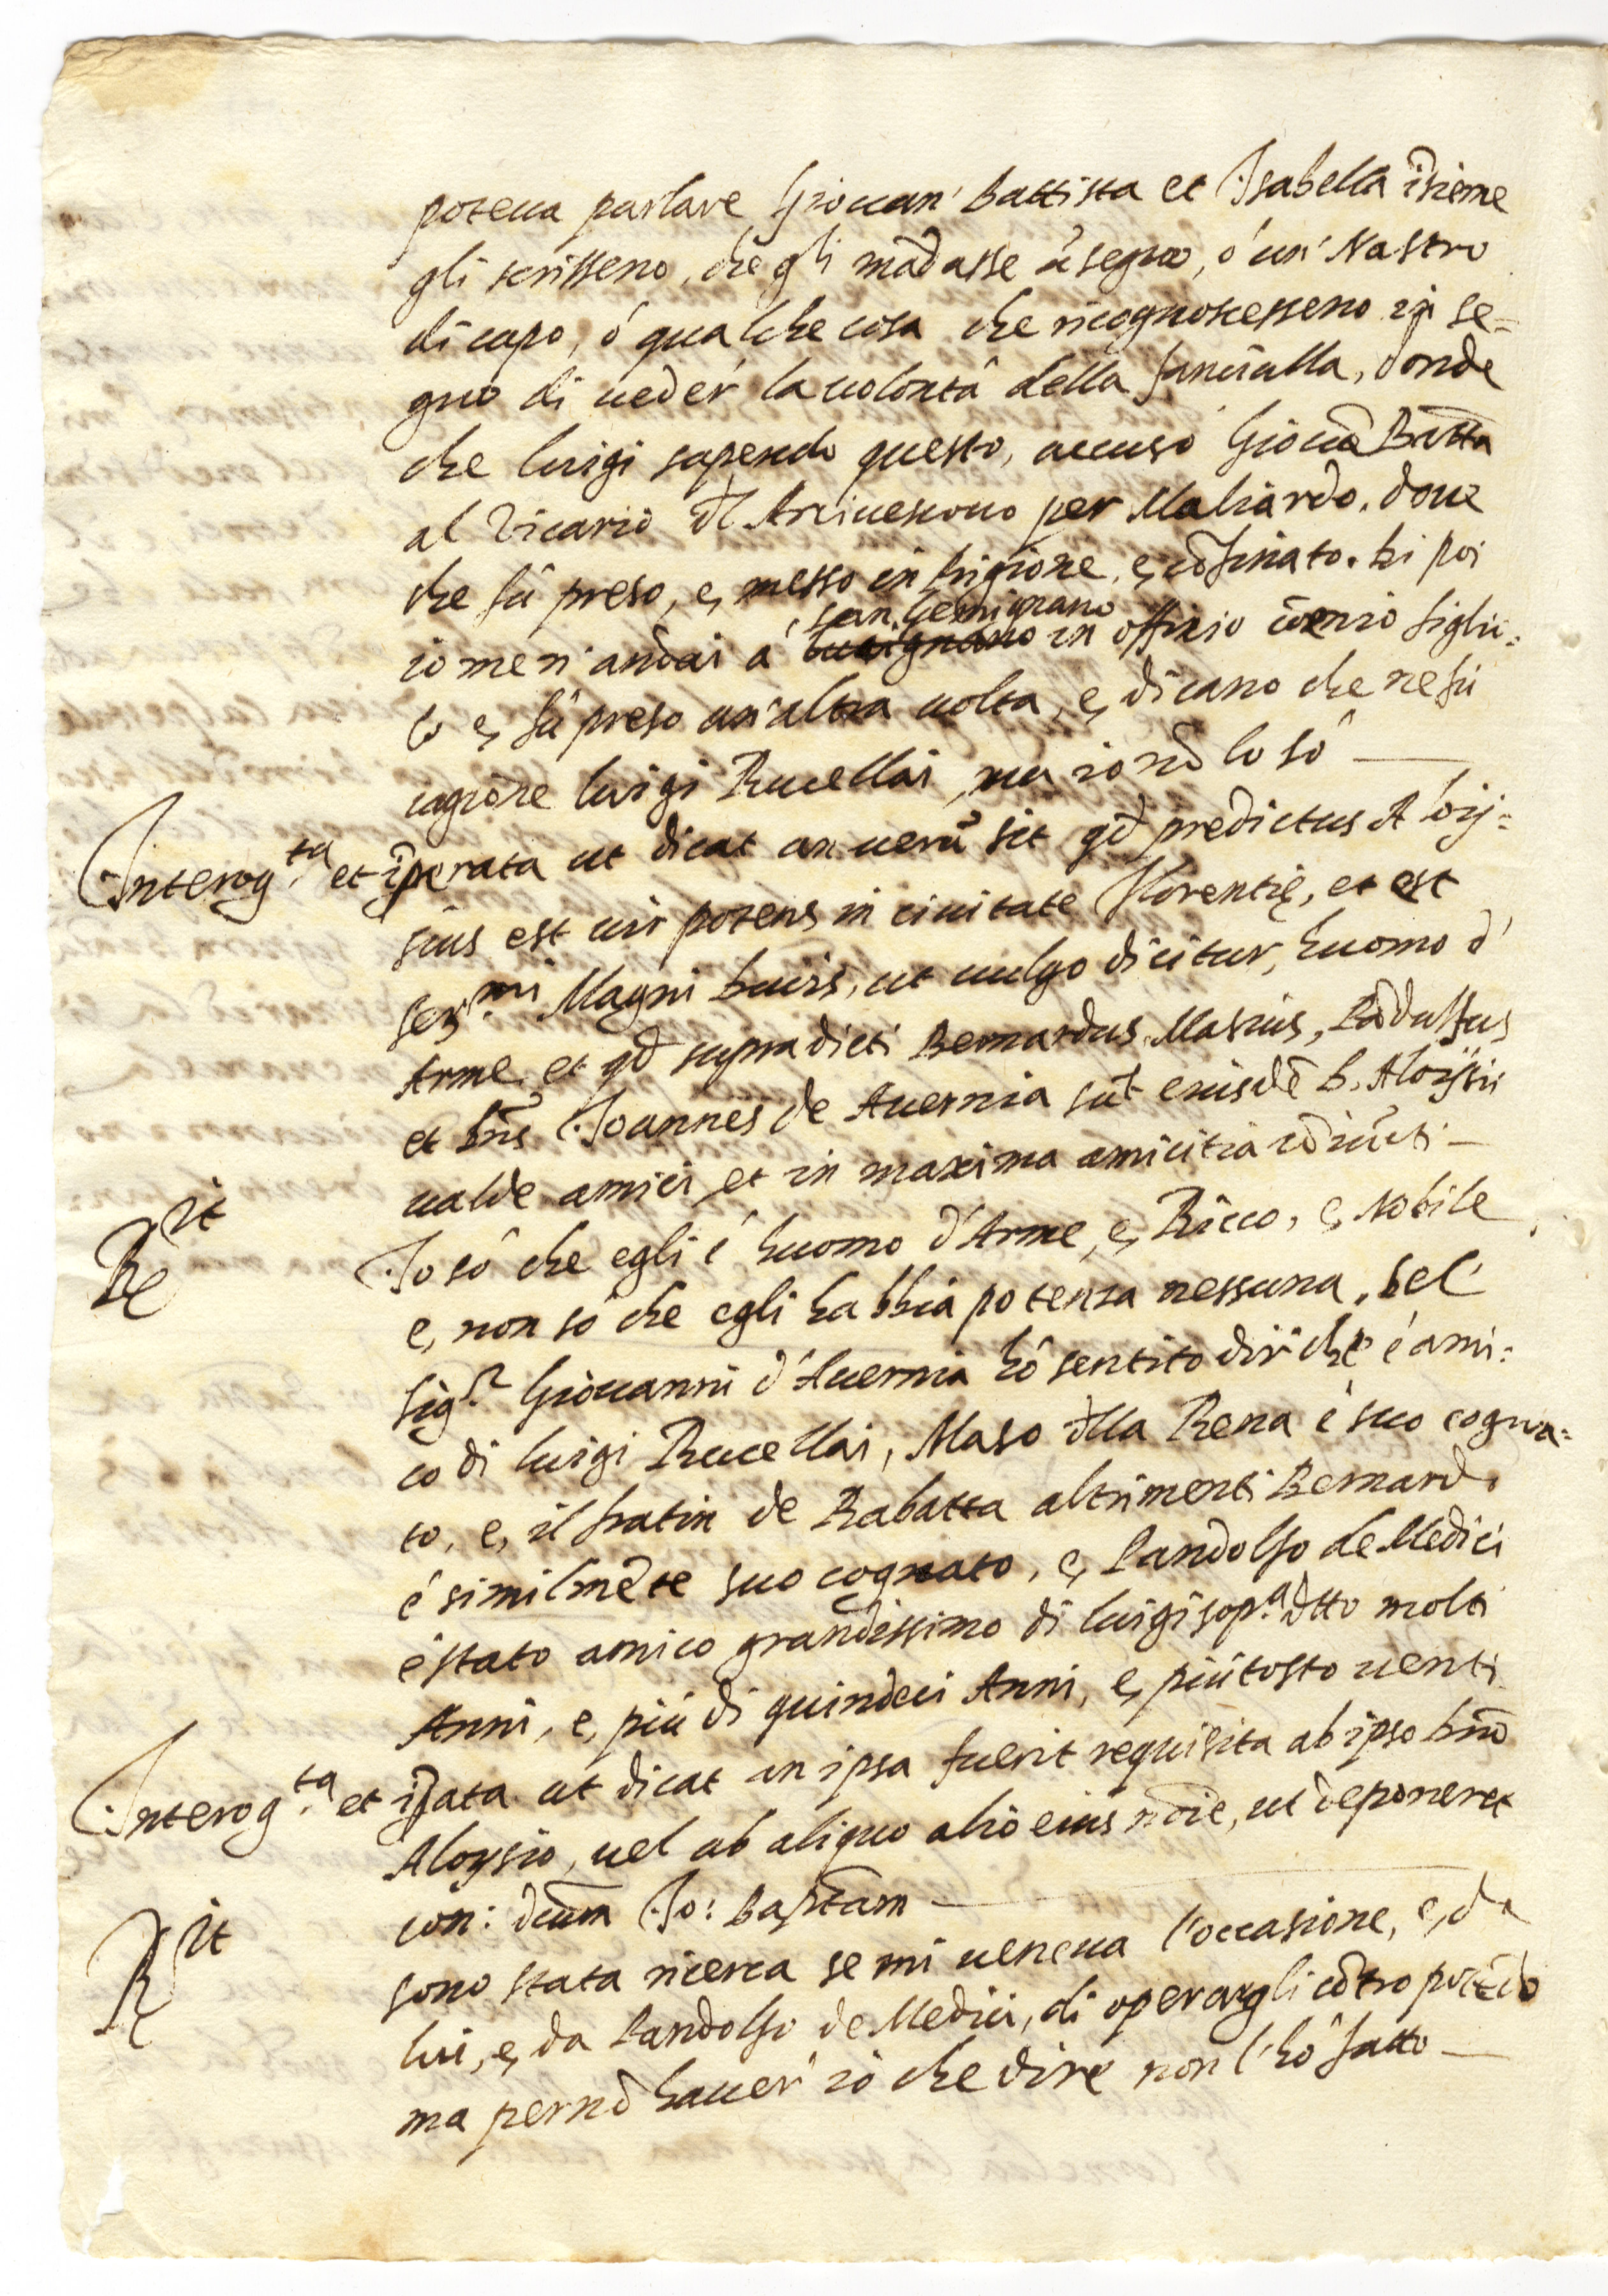 poteua parlare, Giouan' Battista et Isabella īsieme
gli scrisseno, che gli mādasse ū segno, ó un' Nastro
di capo, ó qualche cosa che ricognoscesseno in se=
gno di ueder' la uolontà della fanciulla, donde
che luigi sapendo questo, accusò Giouā Battā
al Vicario dl Arciuescouo per Maliardo, doue
che fù preso, e, messo in prigione, e, cōfinato. Di poi
io men' andai à san Gemignano in offizio cō mio figliu=
lo e, fù preso un'altra uolta, e, dicano che ne fù
cagione luigi Rucellai, ma io nō lo sò
Interog.ta et īperata ut dicat an uerū sit qd predictus Aloij=
sius est uir potens in ciuitate Florentię, et est
ser.mi Magni Ducis, ut uulgo dicitur, huomo d'
Arme, et qd supradicti Bernardus, Masius, Pādulfus
et Dns Joannes de Auernia sūt eiusdē D. Aloysii
ualde amici et in maxima amicitia cōiūcti
R.it Io sò che egli é huomo d'Arme, e, Ricco, e, Nobile,
e, non sò che egli habbia potenza nessuna, Del
sig.r Giouanni d'Auernia hò sentito dir' che é ami=
co di luigi Rucellai, Maso dlla Rena é suo cogna=
to, e, il fratin de Rabatta altrimenti Bernardo
é similmēte suo cognato, e, Pandolfo de Medici
é stato amico grandissimo di luigi sop.a dtto molti
Anni, e, più di quindeci Anni, e, più tosto uenti
Interog.ta et īpata ut dicat an ipsa fuerit requisita ab ipso Dnō
Aloysio, uel ab aliquo alio eius nōie, ut deponeret
con: dcūm Jo: Baptām
R.it sono stata ricerca se mi ueneua l'occasione, e, da
lui, e, da Pandolfo de Medici, di operargli cōtro potēdo
ma per nō hauer' io che dire non l'hò fatto